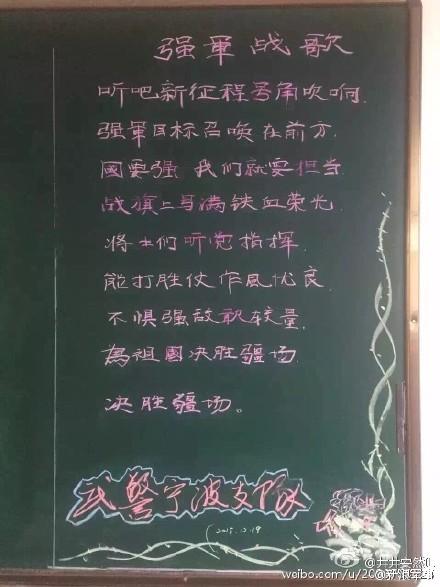 强軍战歌
听吧新征程号角吹响.
强軍目标召唤在前方.
國要强 我们就要担当
战旗上写满铁血荣光.
将士们听党指挥.
能打胜仗作風优良.
不惧强敌敢较量.
為祖國决胜疆场.
决胜疆场。
武警宁波支队
2015.12.19
@井井安然
weibo.com/u/20
@新浪军事